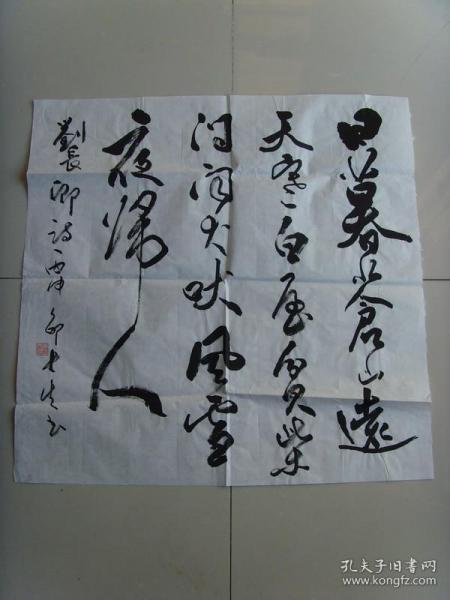 日暮蒼山遠
天寒白屋貧柴
门闻犬吠風雪
夜歸人
劉長卿詩一首
孔夫子旧书网
www.kongfz.com